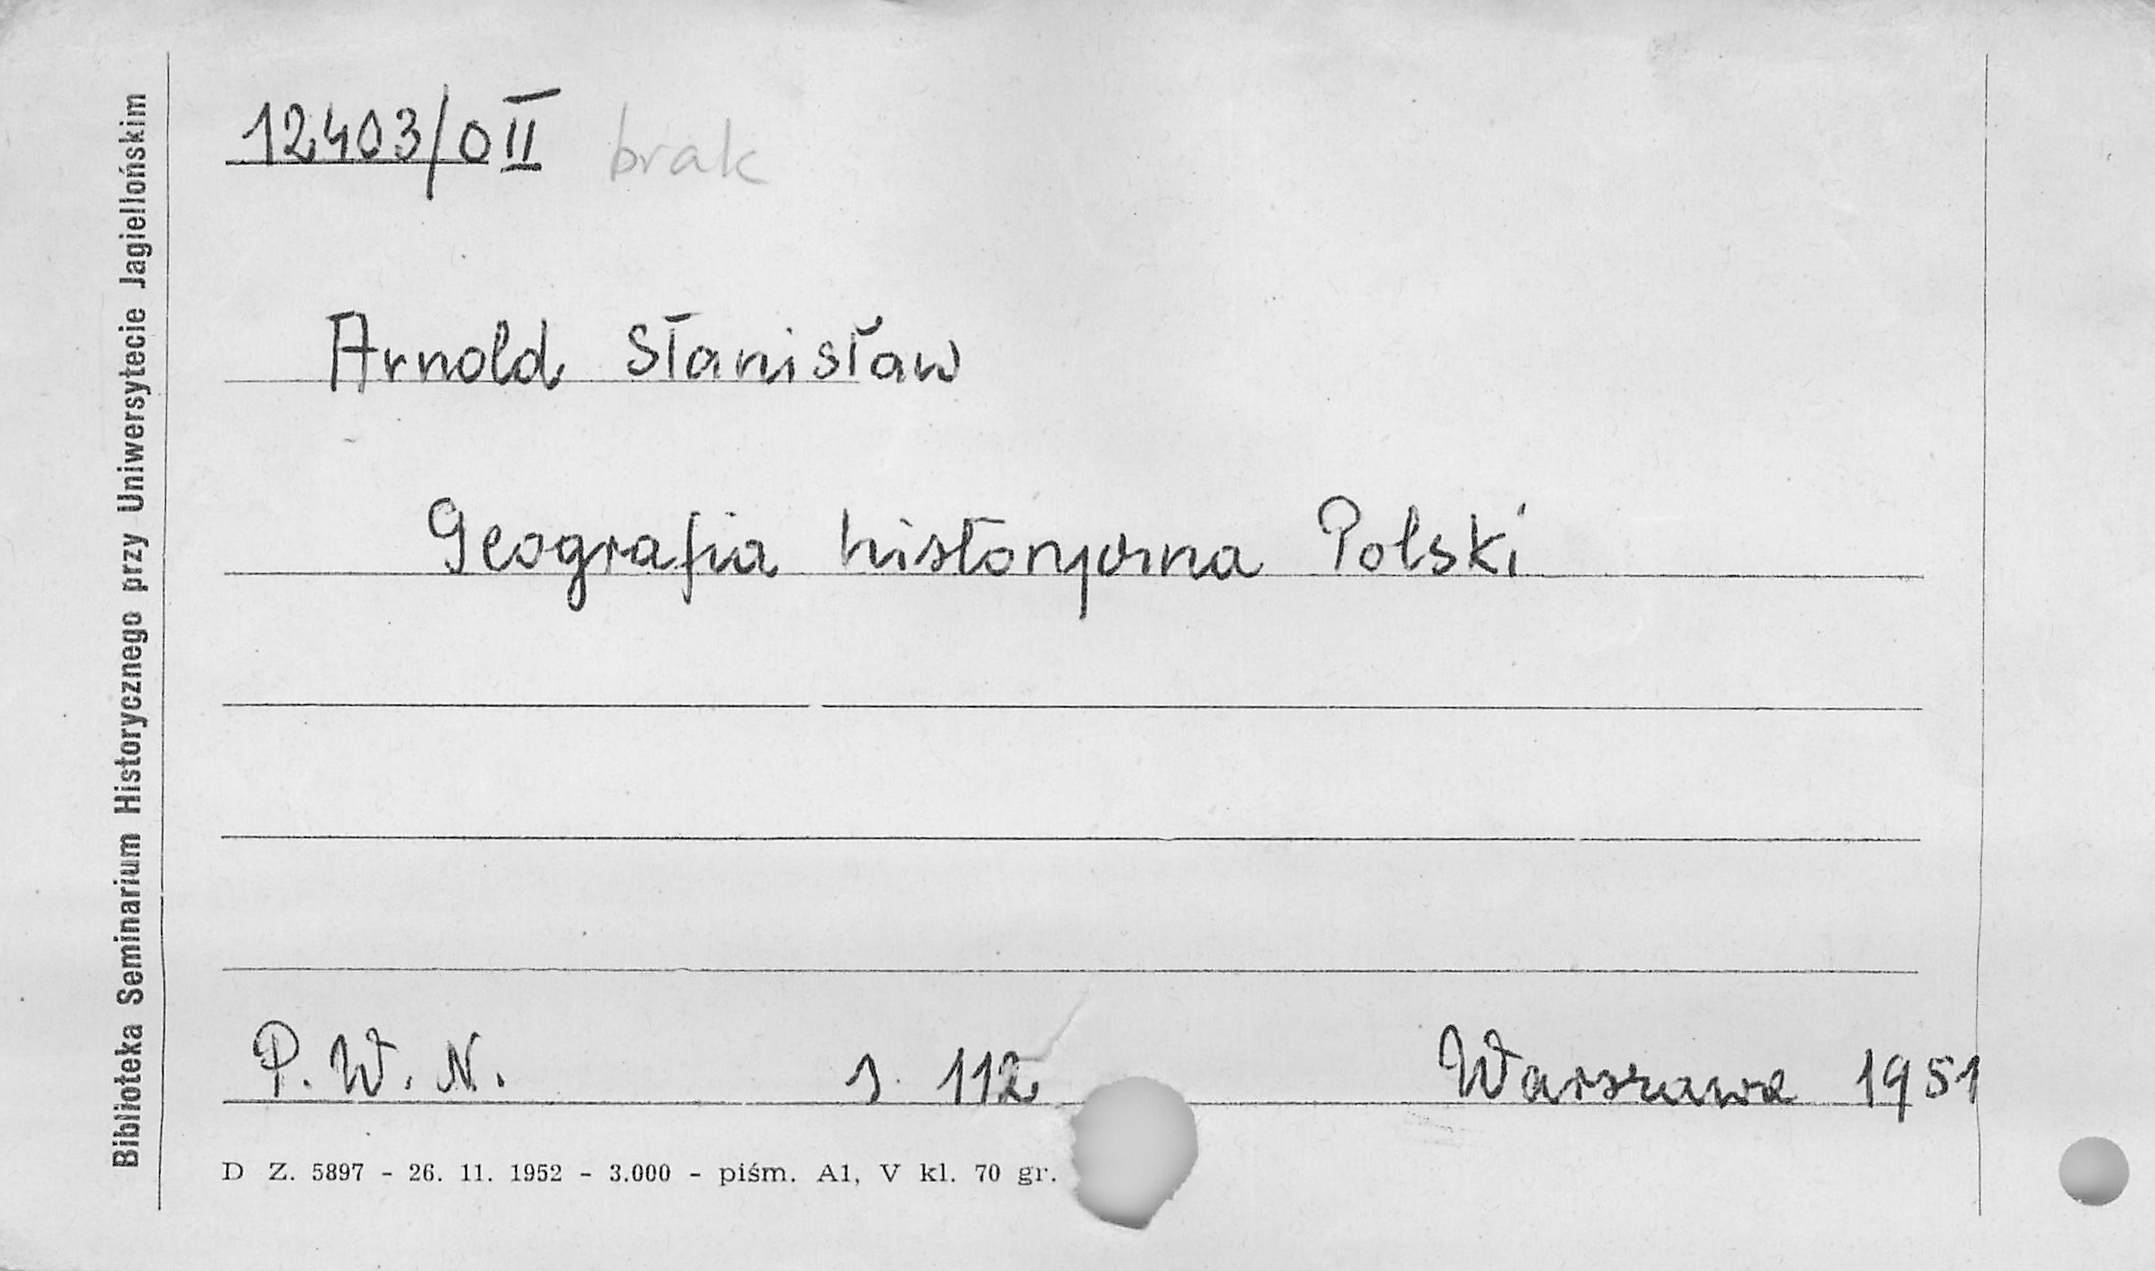 12403/O II brak
Arnold Stanisław
Geografia historyczna Polski
P. W. N. s. 112 Warszawa 1951
D Z. 5897 - 26. 11. 1952 - 3.000 - piśm. A1, V kl. 70 gr.
Biblioteka Seminarium Historycznego przy Uniwersytecie Jagiellońskim